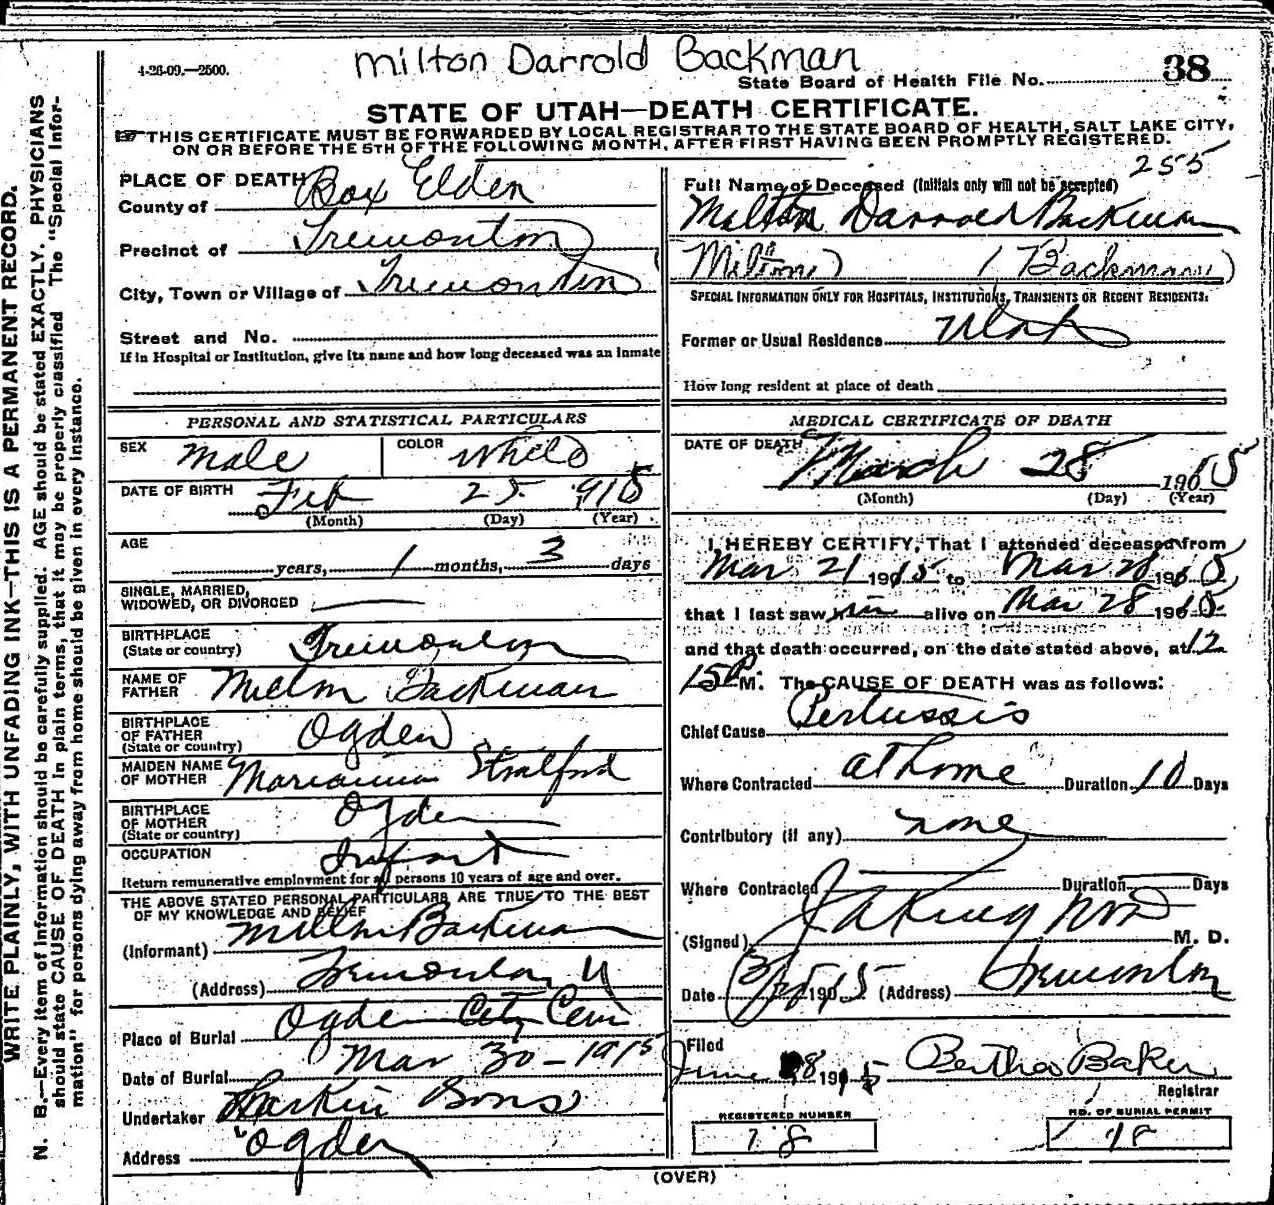 4-26-09.—2500.
Milton Darrold Backman
State Board of Health File No. 38
STATE OF UTAH—DEATH CERTIFICATE.
THIS CERTIFICATE MUST BE FORWARDED BY LOCAL REGISTRAR TO THE STATE BOARD OF HEALTH, SALT LAKE CITY,
ON OR BEFORE THE 5TH OF THE FOLLOWING MONTH, AFTER FIRST HAVING BEEN PROMPTLY REGISTERED.
WRITE PLAINLY, WITH UNFADING INK—THIS IS A PERMANENT RECORD.
N. B.—Every item of information should be carefully supplied. AGE should be stated EXACTLY. PHYSICIANS
should state CAUSE OF DEATH in plain terms, that it may be properly classified The "Special Infor-
mation" for persons dying away from home should be given in every instance.
PLACE OF DEATH
County of Box Elder
Precinct of Tremonton
City, Town or Village of Tremonton
Street and No.
If in Hospital or Institution, give its name and how long deceased was an inmate
PERSONAL AND STATISTICAL PARTICULARS
SEX Male COLOR White
DATE OF BIRTH Feb 25 1915
(Month) (Day) (Year)
AGE
years, 1 months, 3 days
SINGLE, MARRIED,
WIDOWED, OR DIVORCED
BIRTHPLACE
(State or country) Tremonton
NAME OF
FATHER Milton Backman
BIRTHPLACE
OF FATHER
(State or country) Ogden
MAIDEN NAME
OF MOTHER Marianna Stratford
BIRTHPLACE
OF MOTHER
(State or country) Ogden
OCCUPATION Infant
Return remunerative employment for all persons 10 years of age and over.
THE ABOVE STATED PERSONAL PARTICULARS ARE TRUE TO THE BEST
OF MY KNOWLEDGE AND BELIEF
(Informant) Milton Backman
(Address) Tremonton U
Place of Burial Ogden City Cem
Date of Burial Mar 30 - 1915
Undertaker Larkin Sons
Address Ogden
255
Full Name of Deceased (Initials only will not be accepted)
Milton Darrold Backman
Milton) (Backman)
SPECIAL INFORMATION ONLY FOR HOSPITALS, INSTITUTIONS, TRANSIENTS OR RECENT RESIDENTS:
Former or Usual Residence Utah
How long resident at place of death
MEDICAL CERTIFICATE OF DEATH
DATE OF DEATH March 28 1915
(Month) (Day) (Year)
I HEREBY CERTIFY, That I attended deceased from
Mar 21 1915 to Mar 28 1915
that I last saw him alive on Mar 28 1915
and that death occurred, on the date stated above, at 12
15 P M. The CAUSE OF DEATH was as follows:
Chief Cause Pertussis
Where Contracted at home Duration 10 Days
Contributory (if any) none
Where Contracted Duration Days
(Signed) M. D.
Date 190 5 (Address) Tremonton
Filed
June 1915 Bertha Baker
Registrar
REGISTERED NUMBER
NO. OF BURIAL PERMIT
18
(OVER)